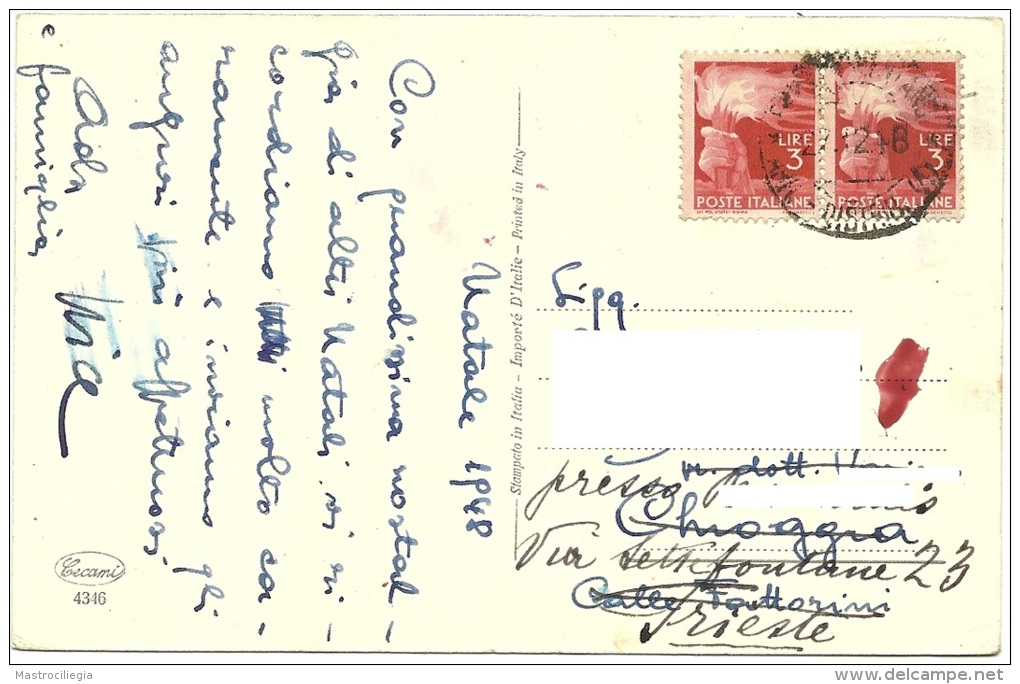 Natale 1948
Con grandissima nostal-
gia di altri Natali vi ri-
cordiamo molto ca-
ramente e inviamo gli
auguri più affettuosi.
Ada
e famiglia
Cecami
4346
Stampato in Italia - Importé D'Italie - Printed in Italy
LIRE
3
POSTE ITALIANE
LIRE
3
POSTE ITALIANE
27.12.48
Sigg.
dott.
presso
Chioggia
Via Settefontane 23
Calle Fattorini
Trieste
Mastrociliegia
www.delcampe.net